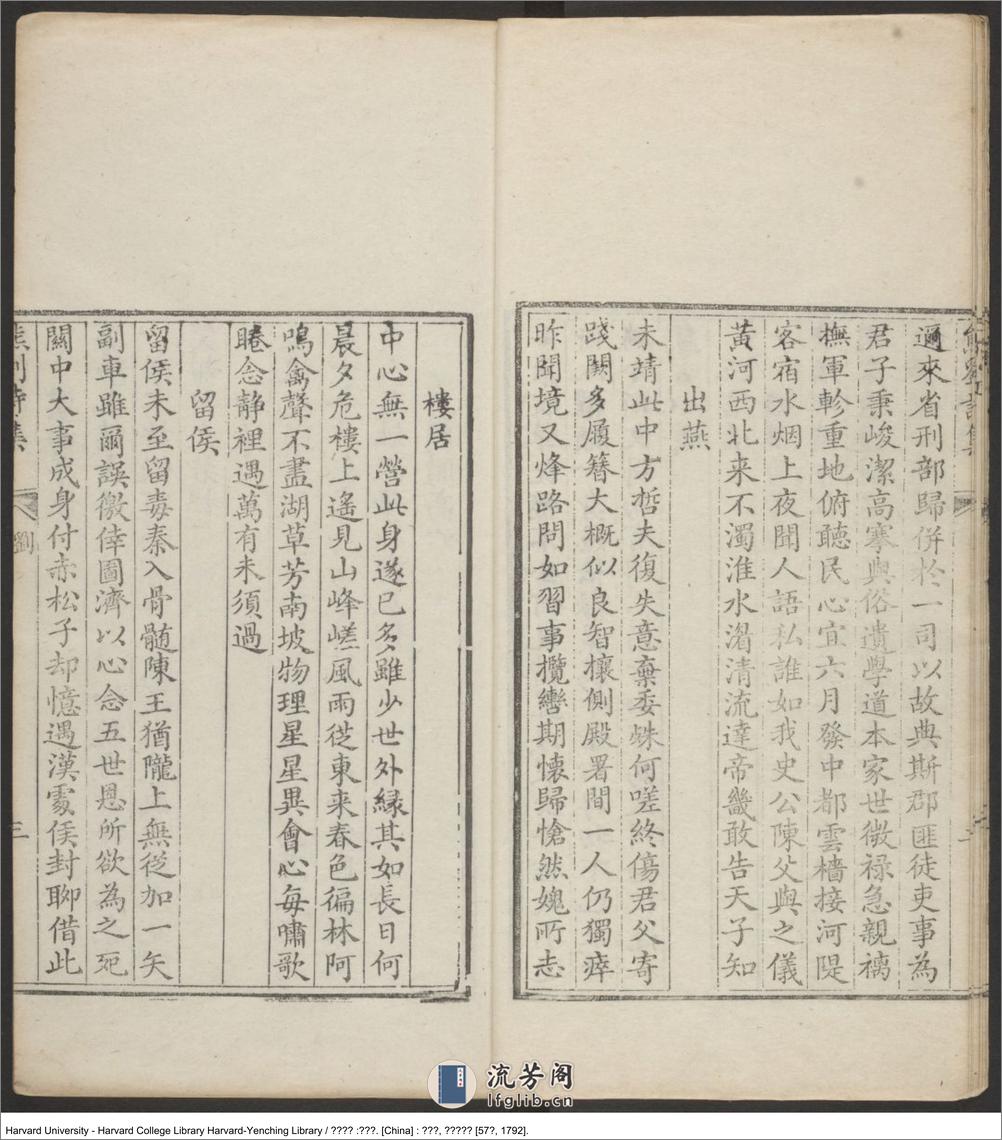 熊劉詩集
邇來省刑部歸併於一司以故典斯郡匪徒吏事為
君子秉峻潔高寒與俗遺學道本家世微禄急親褵
撫軍軫重地俯聽民心宜六月發中都雲檣接河隄
客宿水烟上夜聞人語私誰如我史公陳父與之儀
黃河西北来不濁淮水湄清流達帝畿敢告天子知
出燕
未靖此中方哲夫復失意棄委姝何嗟終傷君父寄
踐闕多履簮大概似良智欀側殿署間一人仍獨瘁
昨聞境又烽路問如習事攬轡期懷歸愴然媿所志
樓居
中心無一營此身遂已多雖少世外緣其如長日何
晨夕危樓上遙見山峰嵯風雨從東来春色徧林阿
鳴禽聲不盡湖草芳南坡物理星星異會心每嘯歌
睠念静裡遇萬有未須過
留侯
留侯未至留毒秦入骨髄陳王猶隴上無從加一矢
副車雖爾誤徼倖圖濟以心念五世恩所欲為之死
關中大事成身付赤松子却憶遇漢䖏侯封聊借此
熊劉詩集
劉
三
流芳阁
lfglib.cn
Harvard University - Harvard College Library Harvard-Yenching Library / ???? :???. [China] : ???, ????? [57?, 1792].